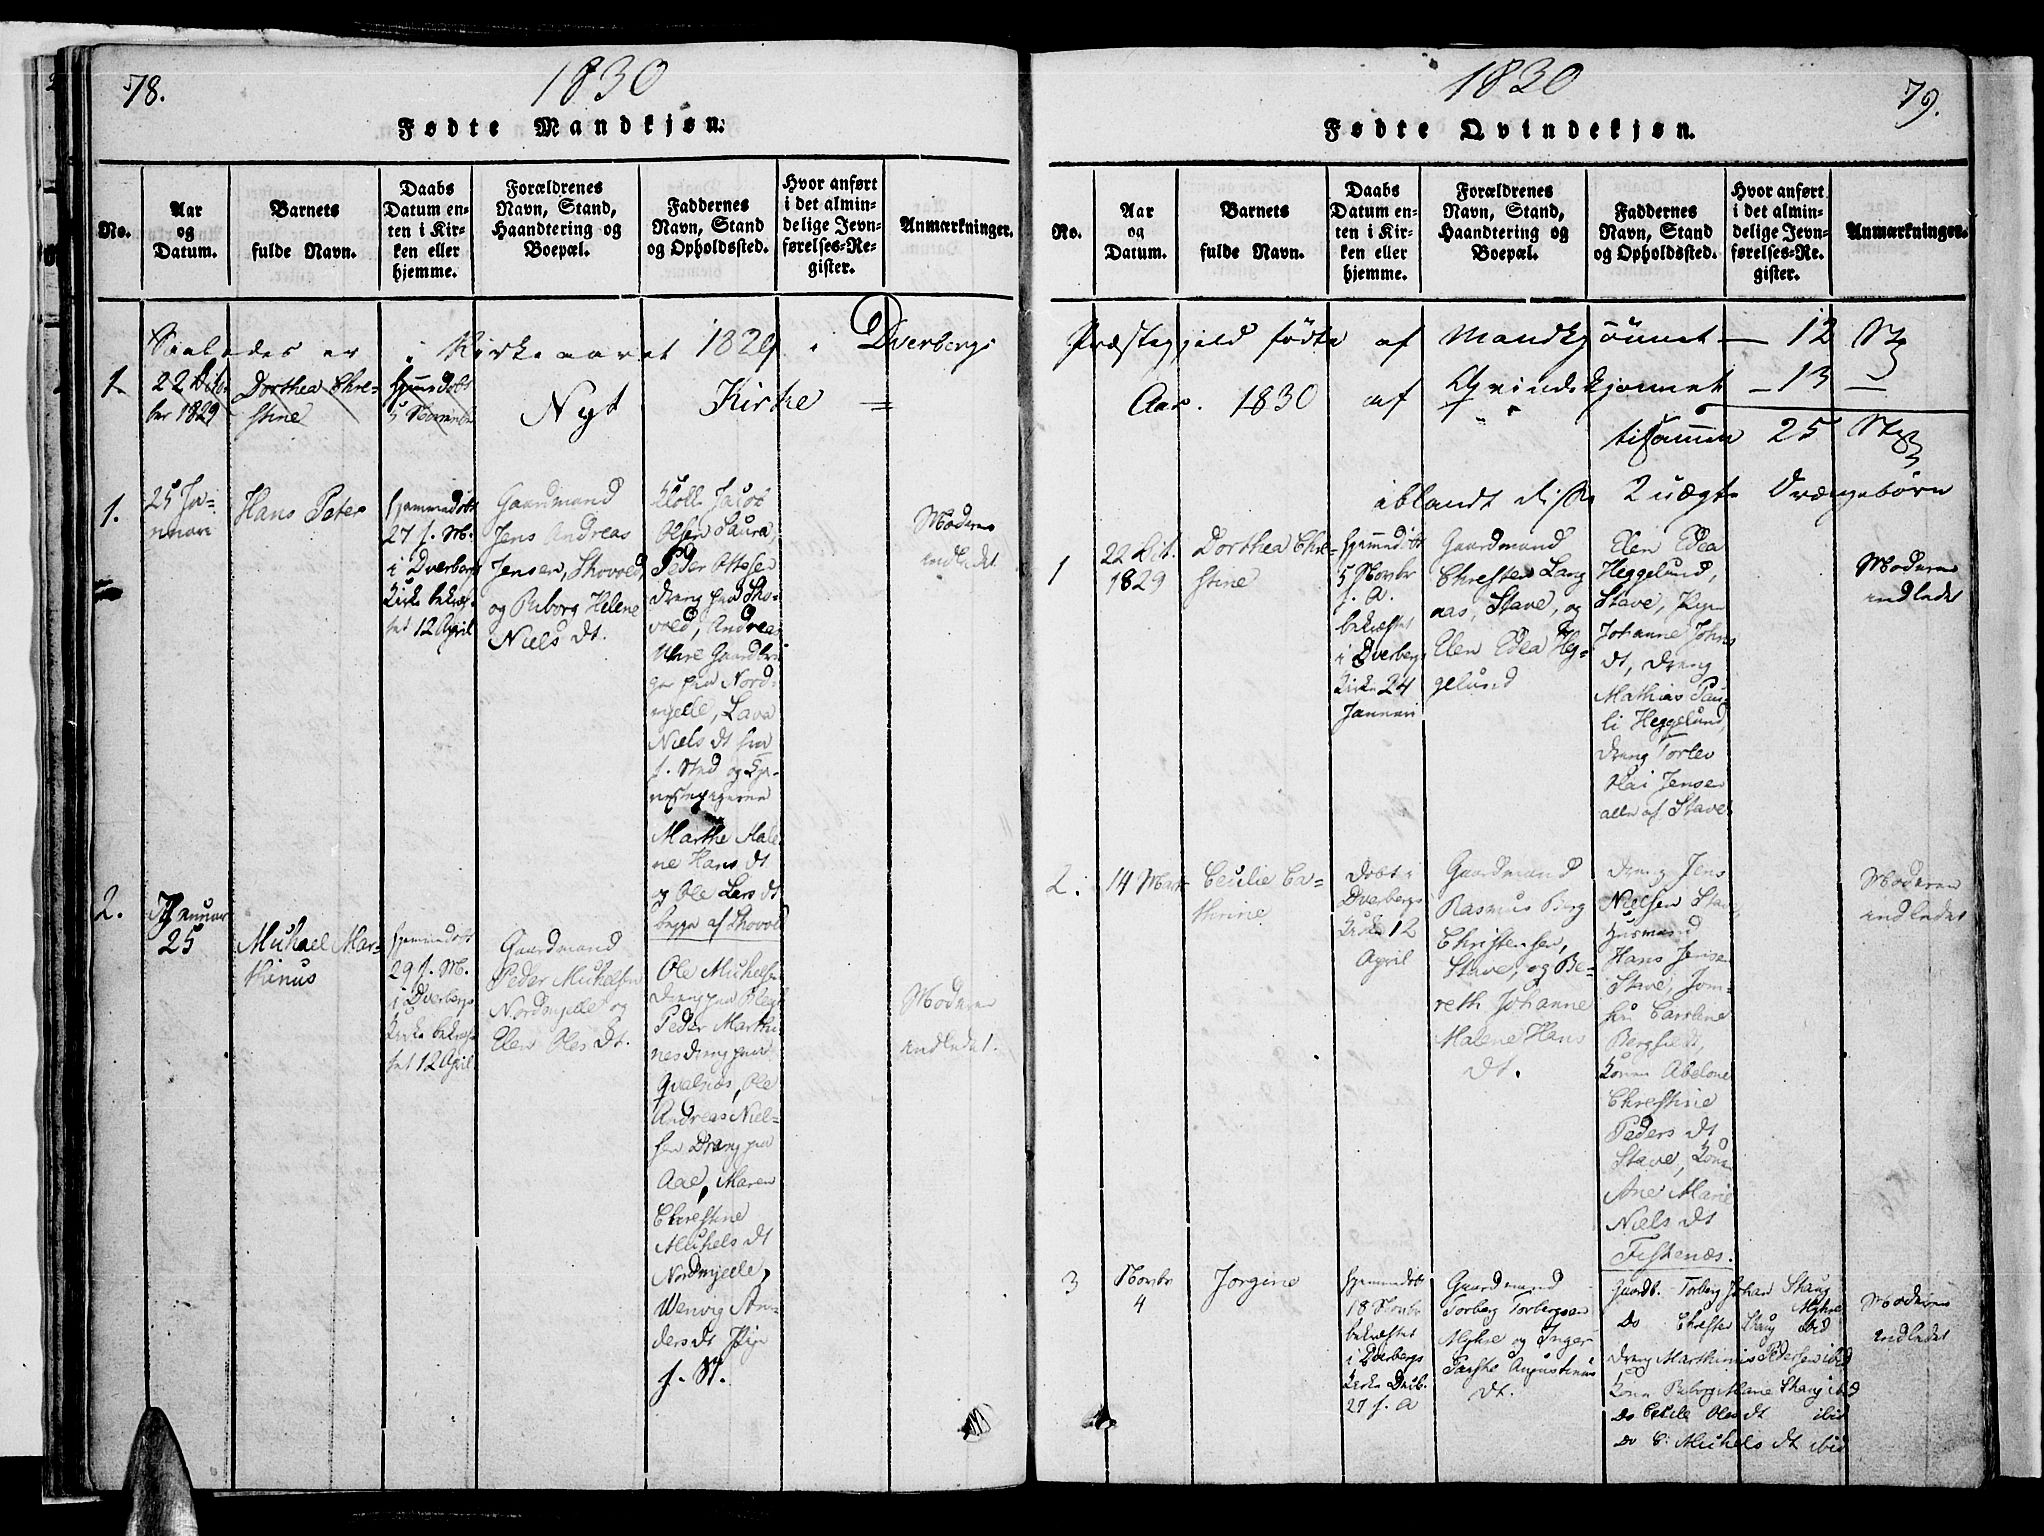 78.
1830
Fødte Mandkjøn.
No.
Aar
og
Datum.
Barnets
fulde Navn.
Daabs
Datum en-
ten i Kir-
ken eller
hjemme.
Forældrenes
Navn, Stand,
Haandtering og
Boepæl.
Faddernes
Navn, Stand
og Opholdssted.
Hvor anført
i det almin-
delige Jevn-
førelses-Re-
gister.
Anmærkninger.
Saaledes er i Kirkeaaret 1829 i Dverbergs
1
22 Octo-
ber 1829
Dorthea Chre-
stine
Hjemedøbt
5 November
Nyt Kirke =
1.
25 Ja-
nuari
Hans Peter
Hjemmedøbt
27 s. M.
i Dverbergs
Kirke bekræf-
tet 12 April
Gaardmand
Jens Andreas
Jensen, Skovold,
og Riborg Helene
Niels dt.
Jacob
Olsen Saura,
Peder Ottesen
Dreng paa Sko-
vold, Andreas
Gaardbru-
ger paa Nord-
mjelle, Lava
Niels dt paa
s. Sted og
Marthe Male-
ne Hans dt
og Ole Lars dt
begge af Skovold
Moderen
indledet
2.
Januar
25
Michael Mar-
thinus
Hjemmedøbt
29 s. M.
i Dverbergs
Kirke bekræf-
tet 12 April
Gaardmand
Peder Michelsen
Nordmjelle og
Elen Oles dt.
Ole Michelsen
Dreng paa
Peder Marthi-
nes dreng paa
Qvalnæs, Ole
Andreas Niel-
sen Dreng paa
Aae, Maren
Christine
Michels dt
Nordmjelle,
Wenvig An-
ders dt Pige
s. St.
Moderen
indledet.
1830
79.
Fødte Qvindekjøn.
No.
Aar
og
Datum.
Barnets
fulde Navn.
Daabs
Datum en-
ten i Kir-
ken eller
hjemme.
Forældrenes
Navn, Stand,
Haandtering og
Boepæl.
Faddernes
Navn, Stand
og Opholdssted.
Hvor anført
i det almin-
delige Jevn-
førelses-Re-
gister.
Anmærkninger.
Præstegjeld fødte af Mandkjønnet — 12
Aar. 1830 af Qvindekjønnet — 13 —
tilsammen 25
iblandt disse 2 uægte Drengebørn
1
22 Oct.
1829
Dorthea Chre-
stine
Hjemmedøbt
5 Novbr
s. A.
bekræftet
i Dverbergs
Kirke 24
Januari
Gaardmand
Chresten Lang
aas, Stave, og
Elen Edea Heg-
gelund
Elen Edea
Heggelund,
Stave, Pigen
Johanne Johns
dt, Dreng
Mathias Pau-
li Heggelund,
Dreng Torlev
Jensen
alle af Stave
Moderen
indledet
2.
14 Marts
Cecilie Ca-
thrine
Døbt i
Dverbergs
Kirke 12
April
Gaardmand
Rasmus Berg
Christensen,
Stave, og Be-
reth Johanne
Malene Hans
dt.
Dreng Jens
Nielsen Stave,
Husmand
Hans Jensen
Stave, Jom-
fru Caroline
Bergfeldt,
Konen Abelone
Chrestine
Peders dt
Stave, Konen
Ane Marie
Niels dt
Fiskenæs.
Moderen
indledet
3
Novbr
4
Jorgine
Hjemmedøbt
18 Novbr
bekræftet
i Dverbergs
Kirke Decb.
27 s. A
Gaardmand
Torberg Torbergsen
Myhre og Inger
Augustinus
dt.
Gaardb. Torberg Johan Skaug
Myhre
Do Chresten Skaug ibid
Dreng Marthinus Pedersen ibid
Kone Riborg Marie Skaug ibid
Do Cecile Oles dt ibid
Do C. Michels dt ibid
Moderen
indledet